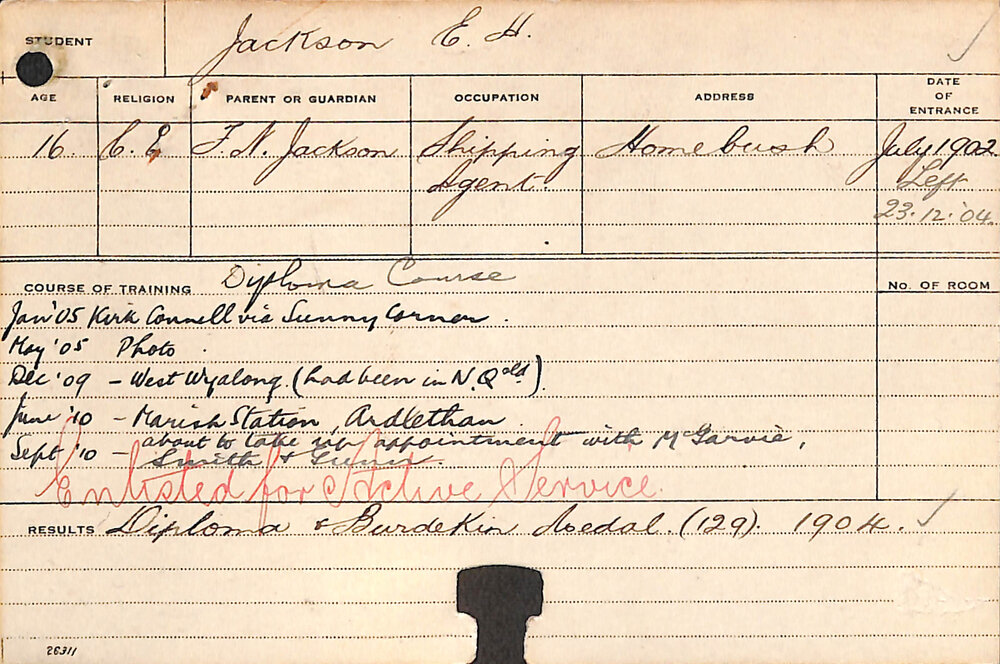 STUDENT Jackson E. H.
AGE RELIGION PARENT OR GUARDIAN OCCUPATION ADDRESS DATE OF ENTRANCE
16. C. E. F. N. Jackson Shipping Homebush July 1902
Agent. Left
23.12.'04.
COURSE OF TRAINING Diploma Course No. OF ROOM
Jan '05 Kirk Connell via Sunny Corner.
May '05 Photo.
Dec '09 - West Wyalong. (had been in N. Qld).
June '10 - Marish Station, Ardlethan
Sept '10 - about to take up appointment with McGarvie,
Smith & Gunn.
Enlisted for Active Service.
RESULTS Diploma & Burdekin Medal. (129). 1904.
26311